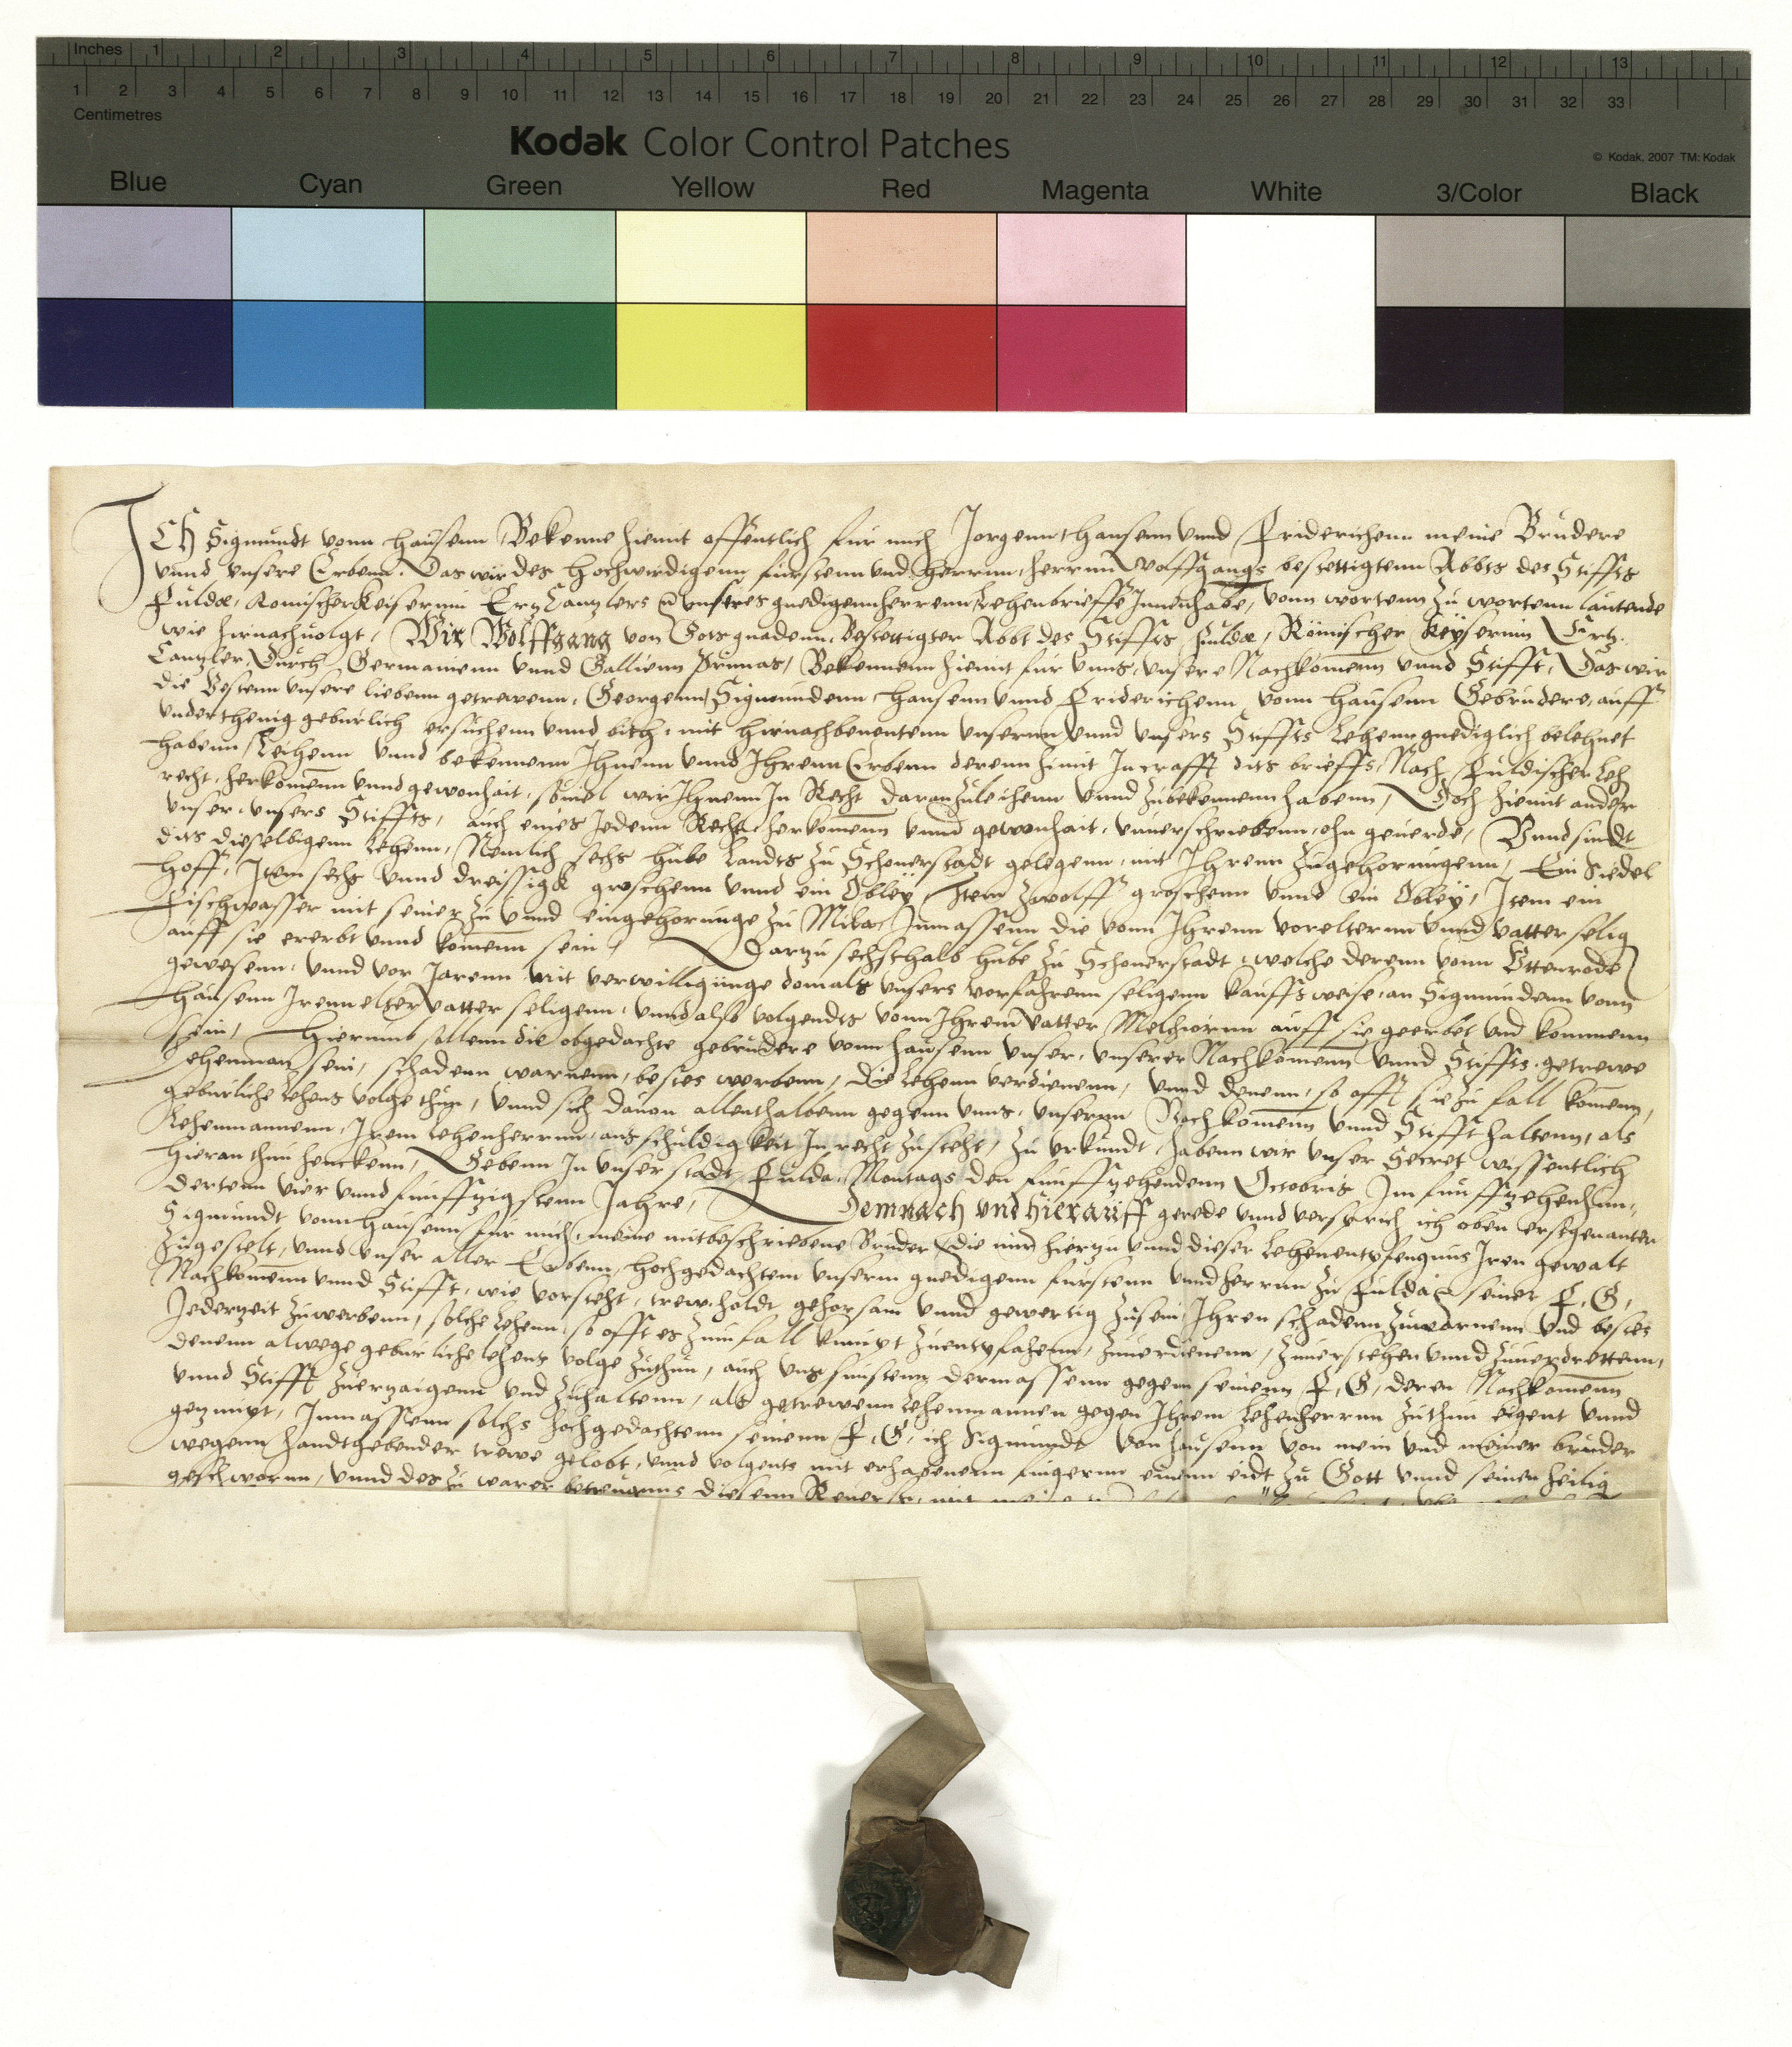 Inches 1 2 3 4 5 6 7 8 9 10 11 12 13
1 2 3 4 5 6 7 8 9 10 11 12 13 14 15 16 17 18 19 20 21 22 23 24 25 26 27 28 29 30 31 32 33
Centimetres
Kodak Color Control Patches
© Kodak, 2007 TM: Kodak
Blue Cyan Green Yellow Red Magenta White 3/Color Black
ICH Sigmundt vonn Hausenn Bekenne hiemit offentlich fur mich Jorgenn Hansenn vnnd Friderichenn meine Brudere
vnnd vnsere Erbenn. Das wir des Hochwirdigenn furstenn vnd Herrnn, herrnn Wolffgangs bestettigtenn Abbts des Stiffts
Fuldæ, Romischer Keiserinn Ertz Cantzlers vnseres gnedigenn herrenn, Lehenbrieffe Innenhabe, vonn wortenn zu wortenn lautende
wie hirnachuolgt, Wir Wolffgang von Gots gnadenn, Bestettigter Abbt des Stiffts Fuldæ, Römischer Keyserinn Ertz-
Cantzler, Durch Germanienn vnnd Gallienn Primas, Bekennenn hiemit fur vnns, vnsere Nachkomenn vnnd Stifft, Das wir
die Vestenn vnsere liebenn getrewenn, Georgenn, Sigmundenn, Hansenn vnnd Friderichenn vonn Hausenn Gebrudere, auff
vnderthenig geburlich ersuchenn vnnd bitth, mit hirnachbenentenn vnsernn vnnd vnsers Stiffts Lehenn gnediglich belehnet
habenn, Leihenn vnnd bekennenn Ihnenn vnnd Ihrenn Erbenn derenn hiemit In crafft dits brieffs, Nach Fuldischer Leh
recht, herkomenn vnnd gewonhait, souiel wir Ihnenn In Recht daran zuleihenn vnnd zubekennenn habenn, Doch hiemit ander
vnser, vnsers Stiffts, auch eines Jedenn Recht, herkomenn vnnd gewonhait, vnuerschriebenn, ohn geuerde, Vnnd sindt
dits dieselbigenn Lehenn, Nemlich sechs hube Landts zu Schonerstadt gelegenn, mit Ihrenn zugehorungenn, Ein Siedel
hoff, Item sechs vnnd dreissigk groschenn vnnd ein Obleÿ, Item zwolff groschenn vnnd ein Obleÿ, Item ein
Fischwasser mit seiner zu vnnd eingehorunge zu Mila, Inmassenn die vonn Ihrenn vorelternn vnnd Vatter selig
auff sie ererbt vnnd komenn sein, Dartzu sechsthalb hube zu Schonerstadt, welche derenn vonn Ottenrode
gewesenn, vnnd vor Jarenn mit verwilligunge domals vnsers vorfahrenn seligenn kauffs weise, an Sigmundenn vonn
Hausenn Irenn elter Vatter seligenn, vnnd also volgendts vonn Ihrem Vatter Melchiornn auff sie geerbet vnd kommenn
sein, Hierumb sollenn die obgedachte gebrudere vonn Hausenn vnser, vnserer Nachkomenn vnnd Stiffts getrewe
Lehenman sein, schadenn warnenn, bestes werbenn, die Lehenn verdienenn, vnnd denenn, so offt sie zu fall komenn,
geburliche Lehens volge thun, vnnd sich dauon allenthalbenn gegenn vnns, vnsernn Nachkomenn vnnd Stifft haltenn, als
Lehenmannenn, Ihrem Lehenherrnn, aus schuldigkeit In recht zusteht, zu vrkundt habenn wir vnser Secret wissentlich
hieran thun hencken, Gebenn In vnser stadt Fulda, Montags den funfftzehendenn Octobris, Im funfftzehenhun-
dertenn vier vnnd funfftzigstenn Jahre, Demnach vnd hierauff gerede vnnd versprich ich oben erstgenanter
Sigmundt vonn Hausenn fur mich, meine mitbeschriebene Bruder (die mir hiertzu vnnd dieser Lehenentpfengnus Iren gewalt
zugestelt, vnnd vnser aller Erbenn, hochgedachtem vnserm gnedigenn furstenn vnnd herrnn zu Fulda, seiner F, G,
Nachkomenn vnnd Stifft, wie vorsteht, trew, holdt, gehorsam vnnd gewertig zusein, Ihren schadenn zuwarnenn vnd bestes
Jedertzeit zuwerbenn, solche Lehenn, so offt es zum fall kumpt zuentpfahenn, zuuerdienenn, zuuerstehen vnnd zuuerdrettenn,
denenn alwege geburliche Lehens volge zuthun, auch vns sunstenn dermassenn gegenn seinenn F, G, deren Nachkomenn
vnnd Stifft zuertzaigenn vnd zuhaltenn, als getrewenn Lehenmannen gegen Ihrem Lehenherrnn zuthun eigent vnnd
getzimpt, Inmassenn solchs hochgedachtenn seinenn F, G, ich Sigmundt von Hausenn von mein vnd meiner bruder
wegenn handtgebender trewe gelobt, vnnd volgents mit erhabenenn fingernn einenn eidt zu Gott vnnd seinen heilig
geschwornn, vnnd des zu warer betzeugnus diesenn Reuerss, mit